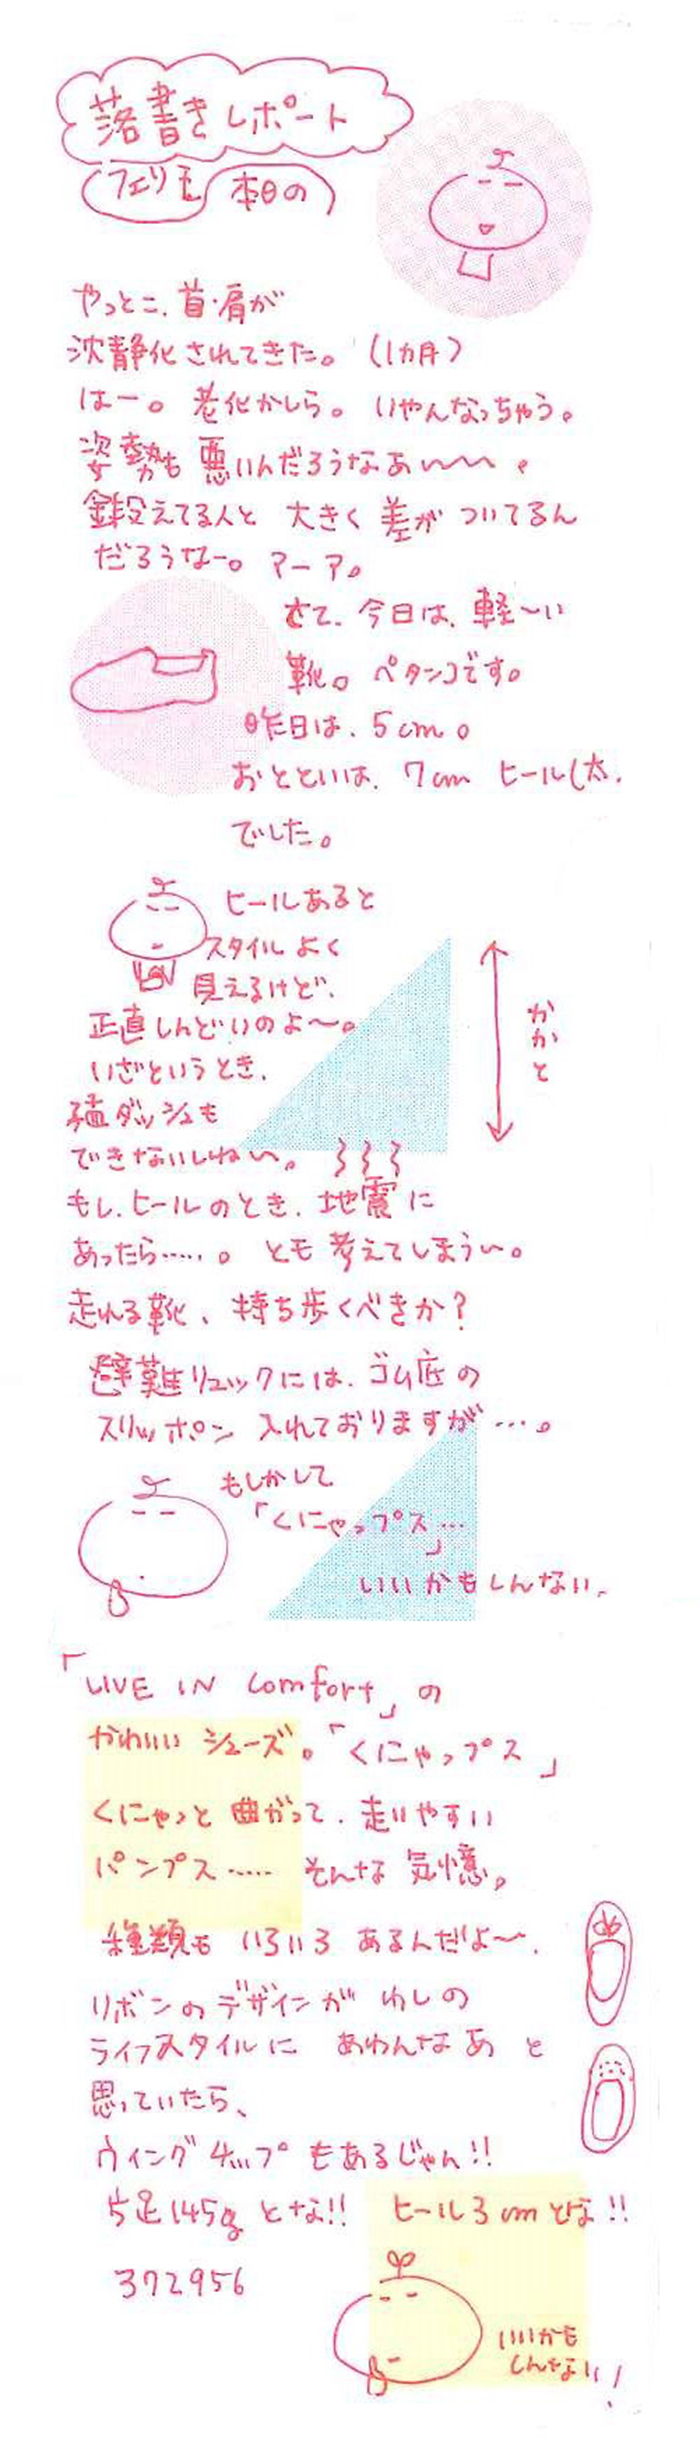 落書きレポート
フェリモ 本日の
やっとこ、首・肩が
沈静化されてきた。(1カ月)
はー。老化かしら。いやんなっちゃう。
姿勢も悪いんだろうなあ〜〜。
鍛えてる人と 大きく差が ついてるん
だろうなー。アーア。
さて、今日は、軽〜い
靴。ペタンコです。
昨日は、5cm。
おとといは、7cm ヒール(太、
でした。
ヒールあると
スタイルよく
見えるけど、
正直しんどいのよ〜。
いざというとき、
猛ダッシュも
できないしね〜。
かかと
もし、ヒールのとき、地震に
あったら……。とも考えてしまう〜。
走れる靴、持ち歩くべきか?
避難リュックには、ゴム底の
スリッポン 入れておりますが…。
もしかして
「くにゃっプス…
」
いいかもしんない。
「LIVE IN comfort」の
かわいい シューズ。「くにゃっプス」
くにゃっと 曲がって、走りやすい
パンプス…… そんな 気憶。
種類も いろいろ あるんだよ〜、
リボンのデザインが わしの
ライフスタイルに あわんなあ と
思っていたら、
ウィングチップもあるじゃん!!
片足145gとな!! ヒール3cmとな!!
372956
いいかも
しんない!